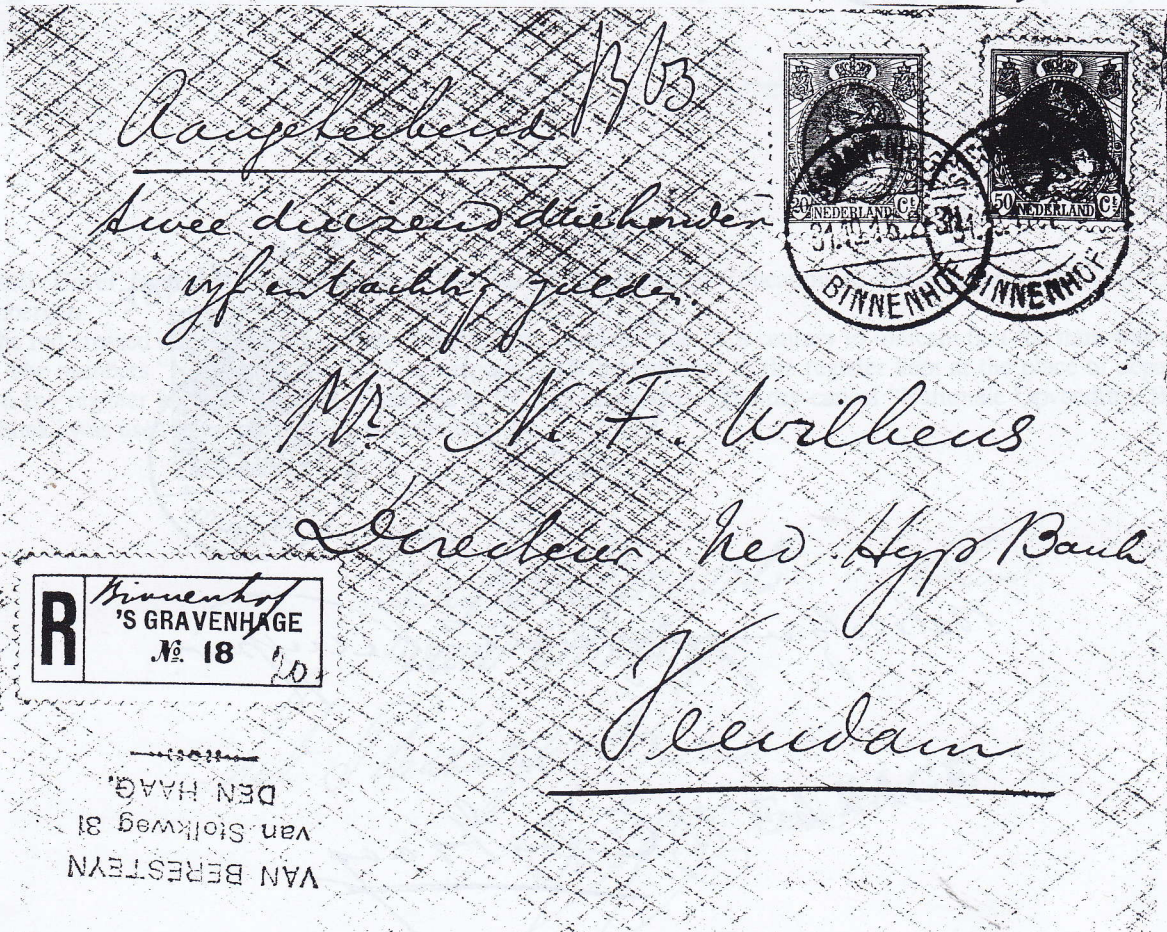 Aangetekend
twee duizend driehonderd
vyf en tachtig gulden.
20 NEDERLAND Ct
50 NEDERLAND Ct
BINNENHOF
BINNENHOF
Mr. N. F. Wilkens
Directeur Ned Hyp Bank
Veendam
R
Binnenhof
'S GRAVENHAGE
No. 18
20
VAN BERESTEYN
van Stolkweg 31
DEN HAAG.